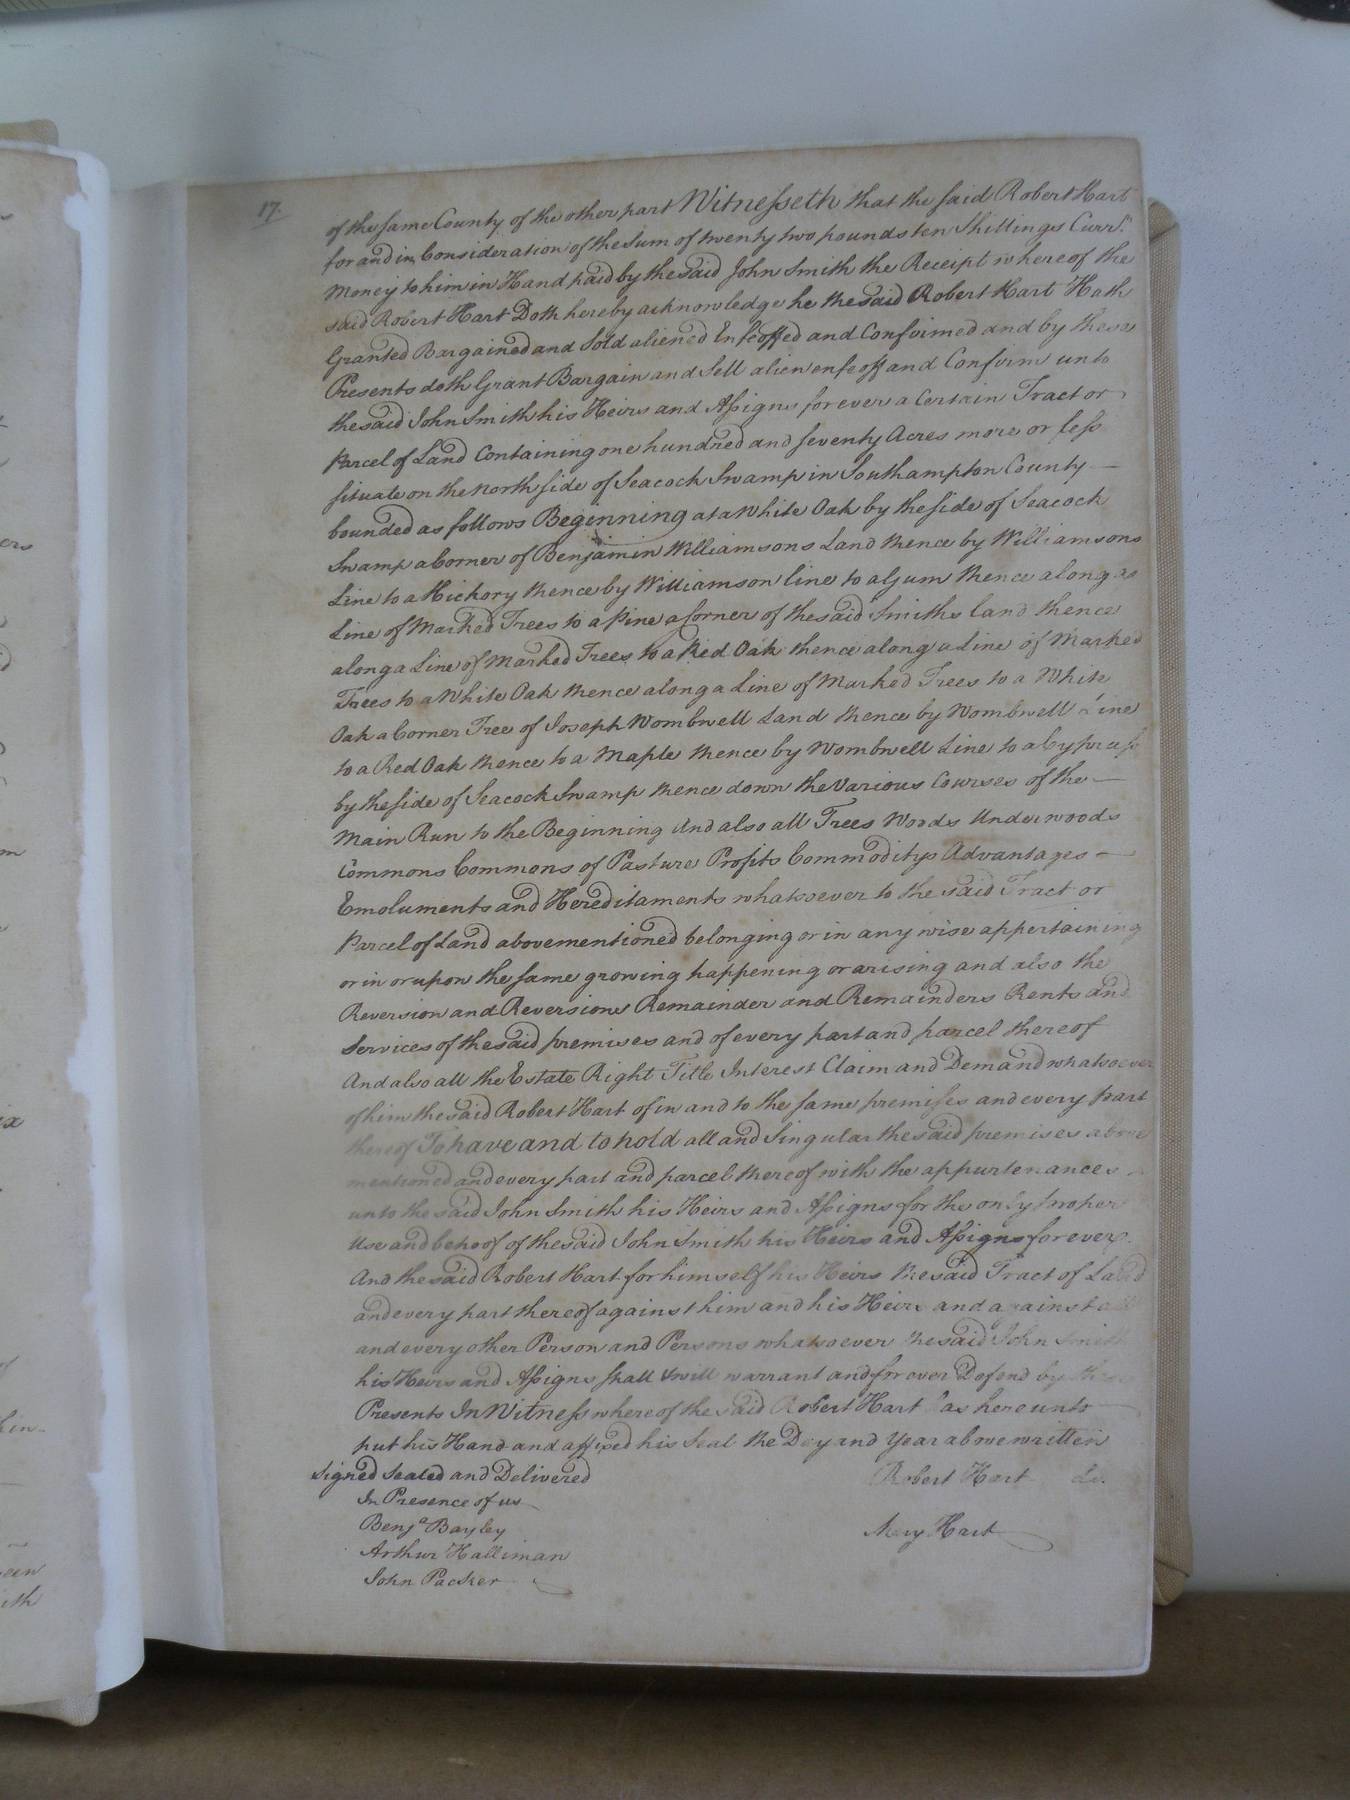 17.
of the same County of the other part Witnesseth that the said Robert Hart
for and in Consideration of the Sum of twenty two pounds ten Shillings Curr.t
Money to him in Hand paid by the said John Smith the Receipt whereof the
said Robert Hart Doth hereby acknowledge he the said Robert Hart Hath
Granted Bargained and Sold aliened Enfeoffed and Confirmed and by these
Presents doth Grant Bargain and Sell alien enfeoff and Confirm unto
the said John Smith his Heirs and Assigns for ever a Certain Tract or
Parcel of Land Containing one hundred and seventy Acres more or less
situate on the north side of Seacock Swamp in Southampton County
bounded as follows Beginning at a White Oak by the side of Seacock
Swamp a Corner of Benjamin Williamsons Land thence by Williamsons
Line to a Hickory thence by Williamson line to a Gum thence along a
Line of Marked Trees to a Pine a Corner of the said Smiths land thence
along a Line of Marked Trees to a Red Oak thence along a Line of Marked
Trees to a White Oak thence along a Line of Marked Trees to a White
Oak a Corner Tree of Joseph Wombwell Land thence by Wombwell Line
to a Red Oak thence to a Maple thence by Wombwell Line to a Cypruss
by the side of Seacock Swamp thence down the Various Courses of the
Main Run to the Beginning And also all Trees Woods Underwoods
Commons Commons of Pasture Profits Commoditys Advantages
Emoluments and Hereditaments whatsoever to the said Tract or
Parcel of Land abovementioned belonging or in any wise appertaining
or in or upon the same growing happening or arising and also the
Reversion and Reversions Remainder and Remainders Rents and
Services of the said premises and of every part and parcel thereof
And also all the Estate Right Title Interest Claim and Demand whatsoever
of him the said Robert Hart of in and to the same premises and every part
thereof To have and to hold all and Singular the said premises above
mentioned and every part and parcel thereof with the appurtenances
unto the said John Smith his Heirs and Assigns for the only proper
Use and behoof of the said John Smith his Heirs and Assigns forever.
And the said Robert Hart for himself his Heirs the said Tract of Land
and every part thereof against him and his Heirs and against all
and every other Person and Persons whatsoever the said John Smith
his Heirs and Assigns shall & will warrant and for ever Defend by these
Presents In Witness whereof the said Robert Hart has hereunto
put his Hand and affixed his Seal the Day and Year above written
Signed Sealed and Delivered Robert Hart Ls.
In Presence of us
Benj.a Bayley Mary Hart
Arthur Halliman
John Packer